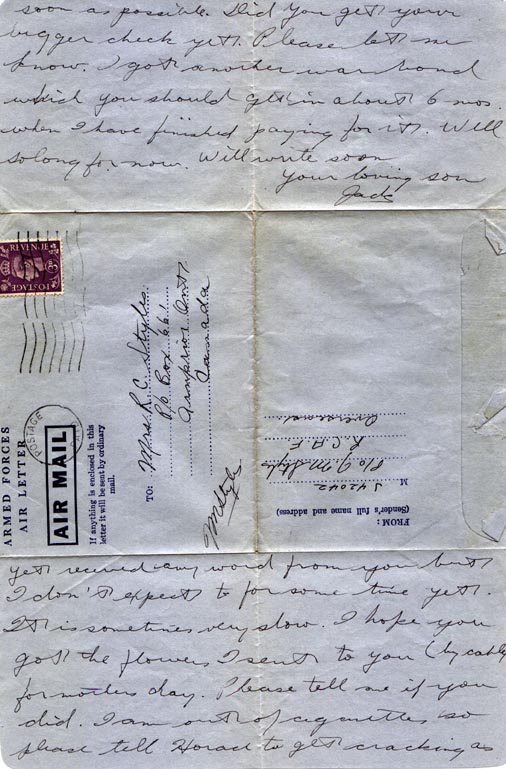 soon as possible. Did you get your
bigger check yet. Please let me
know. I got another war bond
which you should get in about 6 mos.
when I have finished paying for it. Well
so long for now. Will write soon
Your loving son
Jack
REVENUE
POSTAGE
3D
ARMED FORCES
AIR LETTER
POSTAGE
AIR MAIL
If anything is enclosed in this
letter it will be sent by ordinary
mail.
TO: Mrs R. C. Styles
P.O. Box 661
Arnprior Ont
Canada
FROM:
(Sender's full name and address)
J42042
P/O J M Styles
R.C.A.F.
Overseas
yet received any word from you but
I don't expect to for some time yet.
It is sometimes very slow. I hope you
got the flowers I sent to you (by cable)
for mothers day. Please tell me if you
did. I am out of cigarettes so
please tell Horace to get cracking as